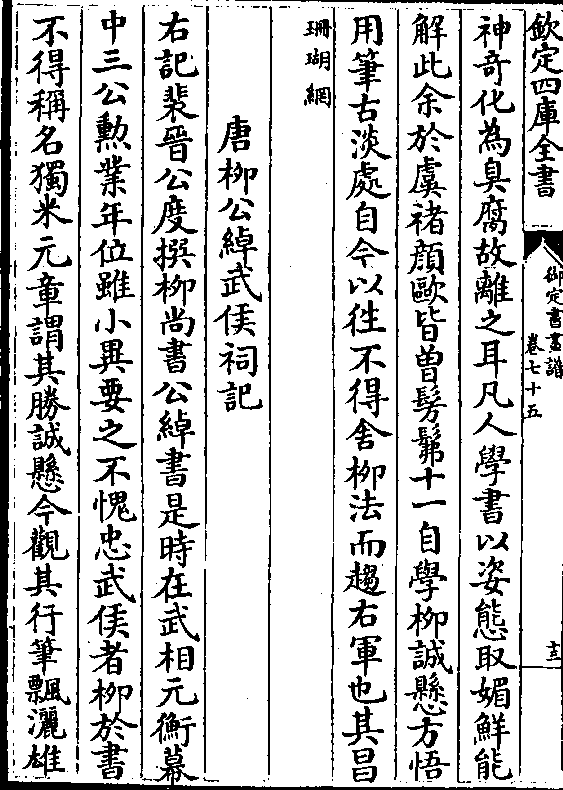 欽定四庫全書
御定書畫譜
卷七十五
十三
神奇化為臭腐故離之耳凡人學書以姿態取媚鮮能
解此余於虞褚顔歐皆曾髣髴十一自學柳誠懸方悟
用筆古淡處自今以徃不得舍柳法而趨右軍也其昌
珊瑚網
唐柳公綽武侯祠記
右記裴晉公度撰柳尚書公綽書是時在武相元衡幕
中三公勲業年位雖小異要之不愧忠武侯者柳於書
不得稱名獨米元章謂其勝誠懸今觀其行筆飄灑雄